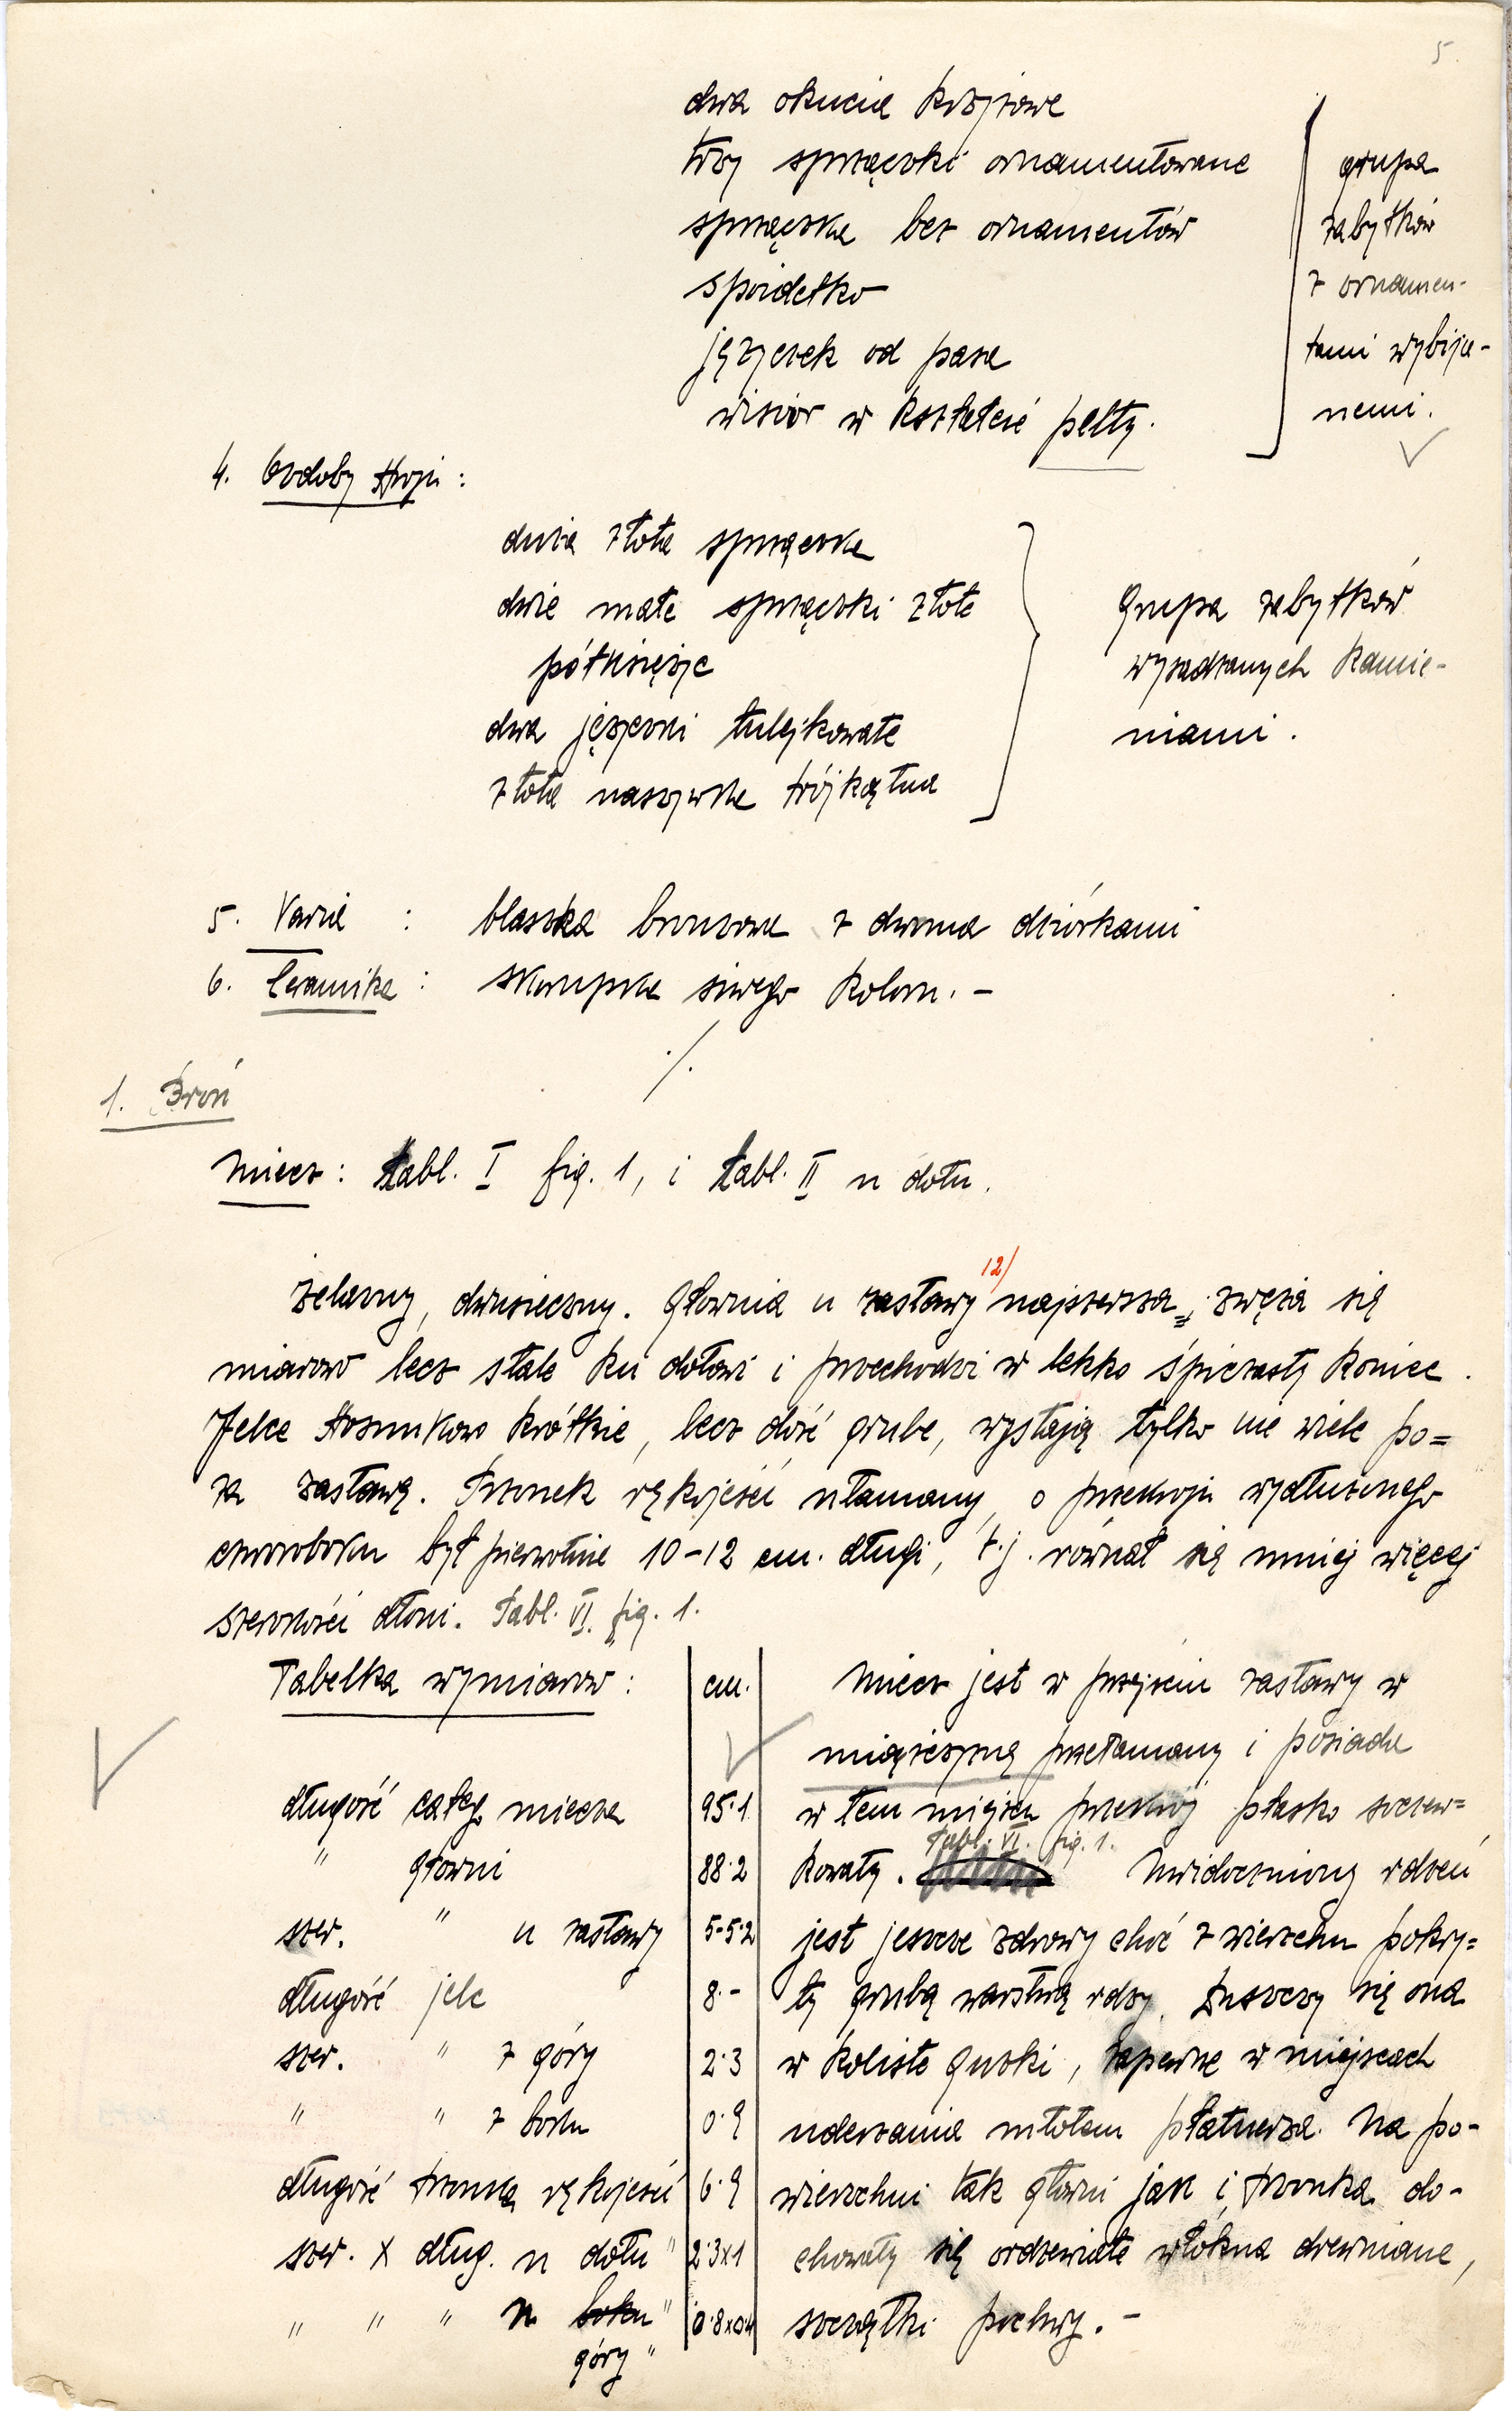 5.
dwa okucia krzyżowe
trzy sprzączki ornamentowane
sprzączka bez ornamentów
szpidełko
języczek od pasa
wisior w kształcie pelty.
grupa
zabytków
z ornamen-
tami wybija-
nemi.
4. Ozdoby stroju :
duża złota sprzączka
dwie małe sprzączki złote
półksiężyc
dwa języczki tulejkowate
złota naszywka trójkątna
Grupa zabytków
wysadzanych kamie-
niami.
5. Varia : blaszka bronzowa z dwoma dziórkami
6. Ceramika : skorupka siwego koloru. -
./.
1. Broń
Miecz : tabl. I fig. 1, i tabl. II u dołu.
żelazny, dwusieczny. Głownia u zastawy 12/ najszersza, zwęża się
miarowo lecz stale ku dołowi i przechodzi w lekko śpiczasty koniec.
Jelce stosunkowo krótkie, lecz dość grube, wystają tylko nie wiele po=
za zastawę. Trzonek rękojeści ułamany, o przekroju wydłużonego
czworoboku był pierwotnie 10-12 cm. długi, t.j. równał się mniej więcej
szerokości dłoni. Tabl. VI. fig. 1.
Tabelka wymiarów : cm.
długość całego miecza 95.1
" głowni 88.2
szer. " u zastawy 5-5.2
długość jelc 8.-
szer. " z góry 2.3
" " z boku 0.9
długość trzonka rękojeści 6.9
szer. x dług. u dołu " 2.3x1
" " " u boku " 0.8x0.4
góry "
Miecz jest w przejściu zastawy w
miąższyznę przełamany i posiada
w tem miejscu przekrój płasko soczew=
Tabl. VI. fig. 1.
kowaty. Uwidoczniony rdzeń
jest jeszcze zdrowy choć z wierzchu pokry=
ty grubą warstwą rdzy. Łuszczy się ona
w koliste guzki, zapewne w miejscach
uderzania młotem płatnerza. Na po-
wierzchni tak głowni jak i trzonka do-
chowały się ordzewiałe włókna drewniane,
szczątki pochwy. -